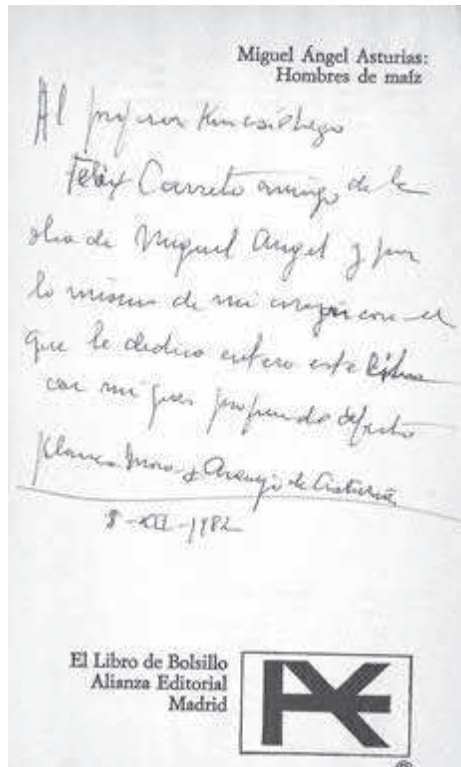 Miguel Ángel Asturias:
Hombres de maíz
Al profesor Kinesiólogo
Félix Carreto amigo de la
obra de Miguel Angel y por
lo mismo de mi corazón con el
que le dedico entero este libro
con mi más profundo afecto
Blanca Mora y Araujo de Asturias
8-XII-1982
El Libro de Bolsillo
Alianza Editorial
Madrid